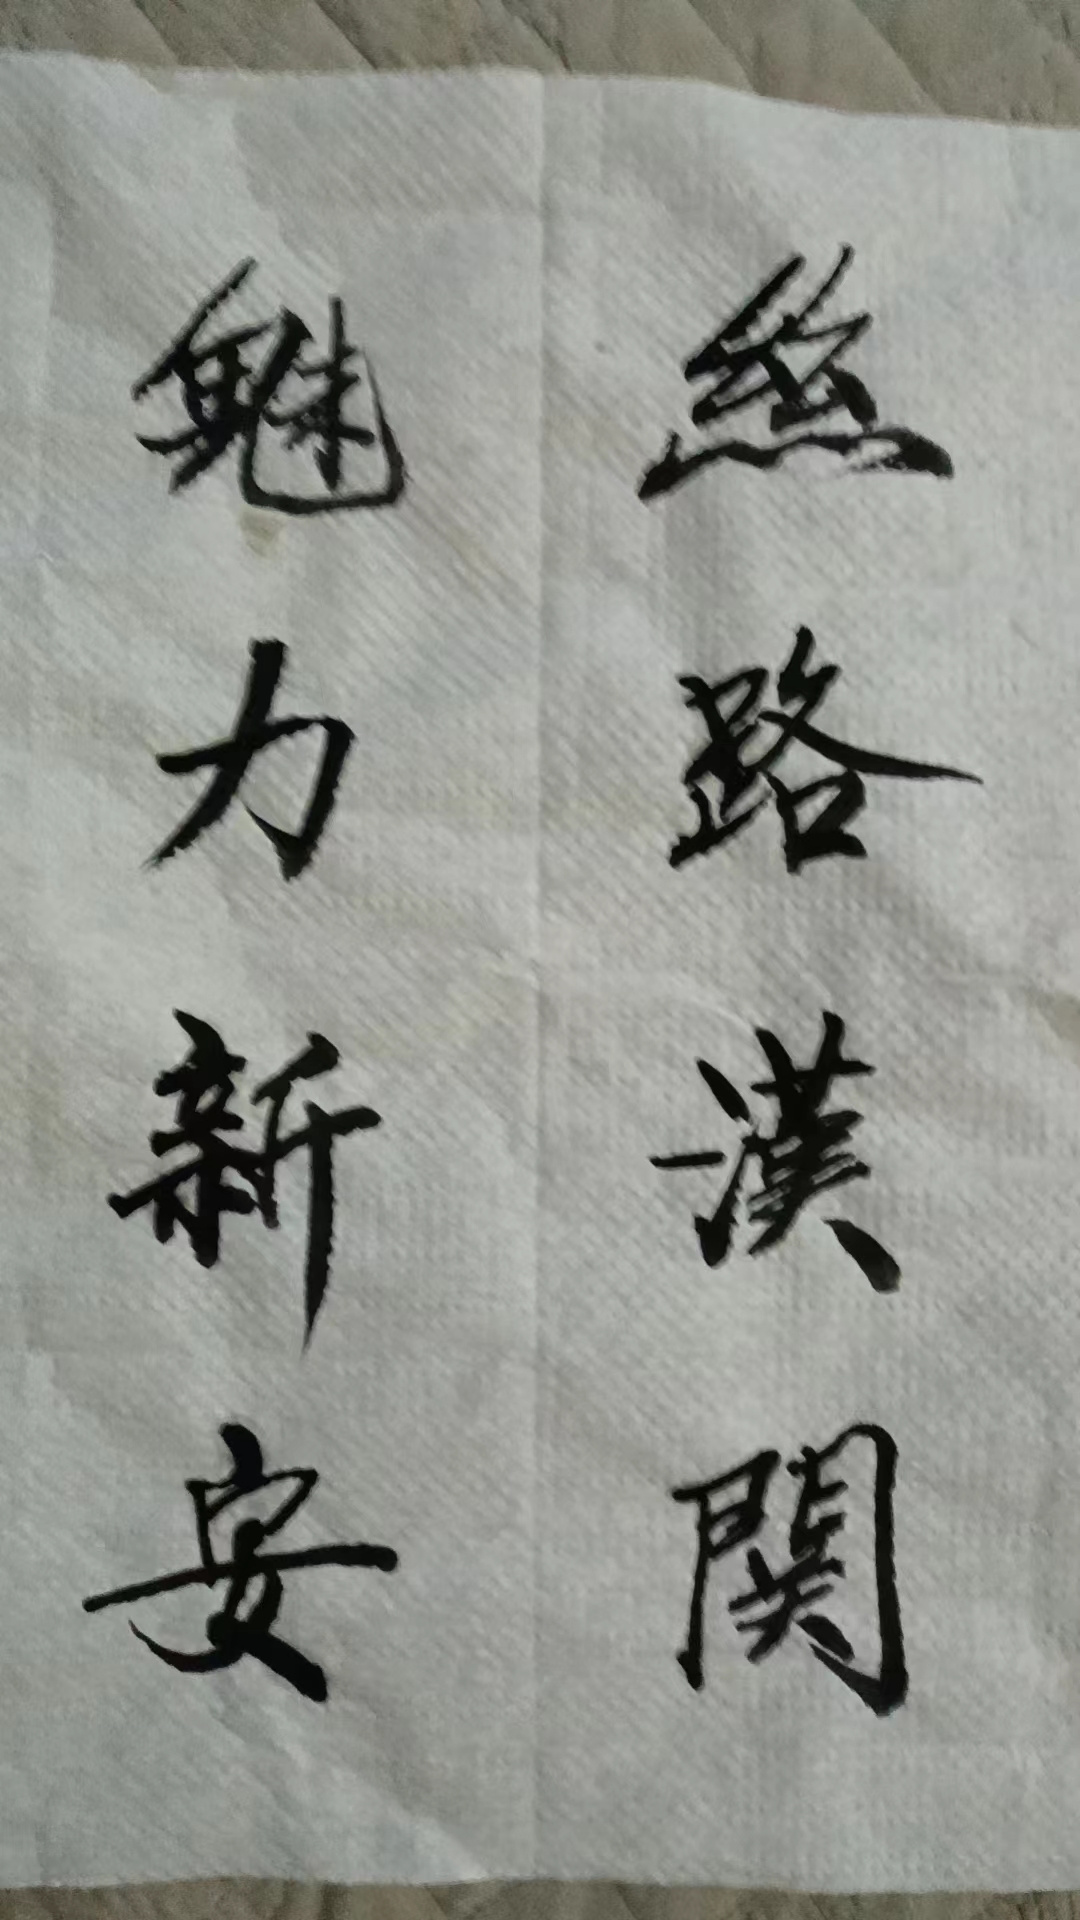 絲路漢関
魅力新安